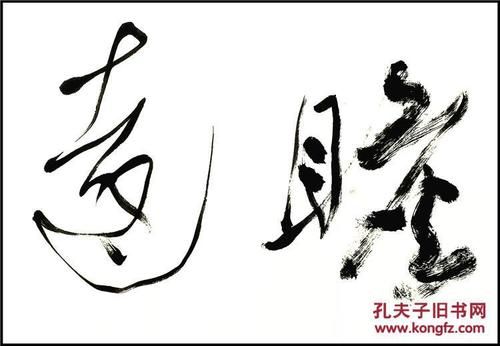 瞻遠
孔夫子旧书网
www.kongfz.com